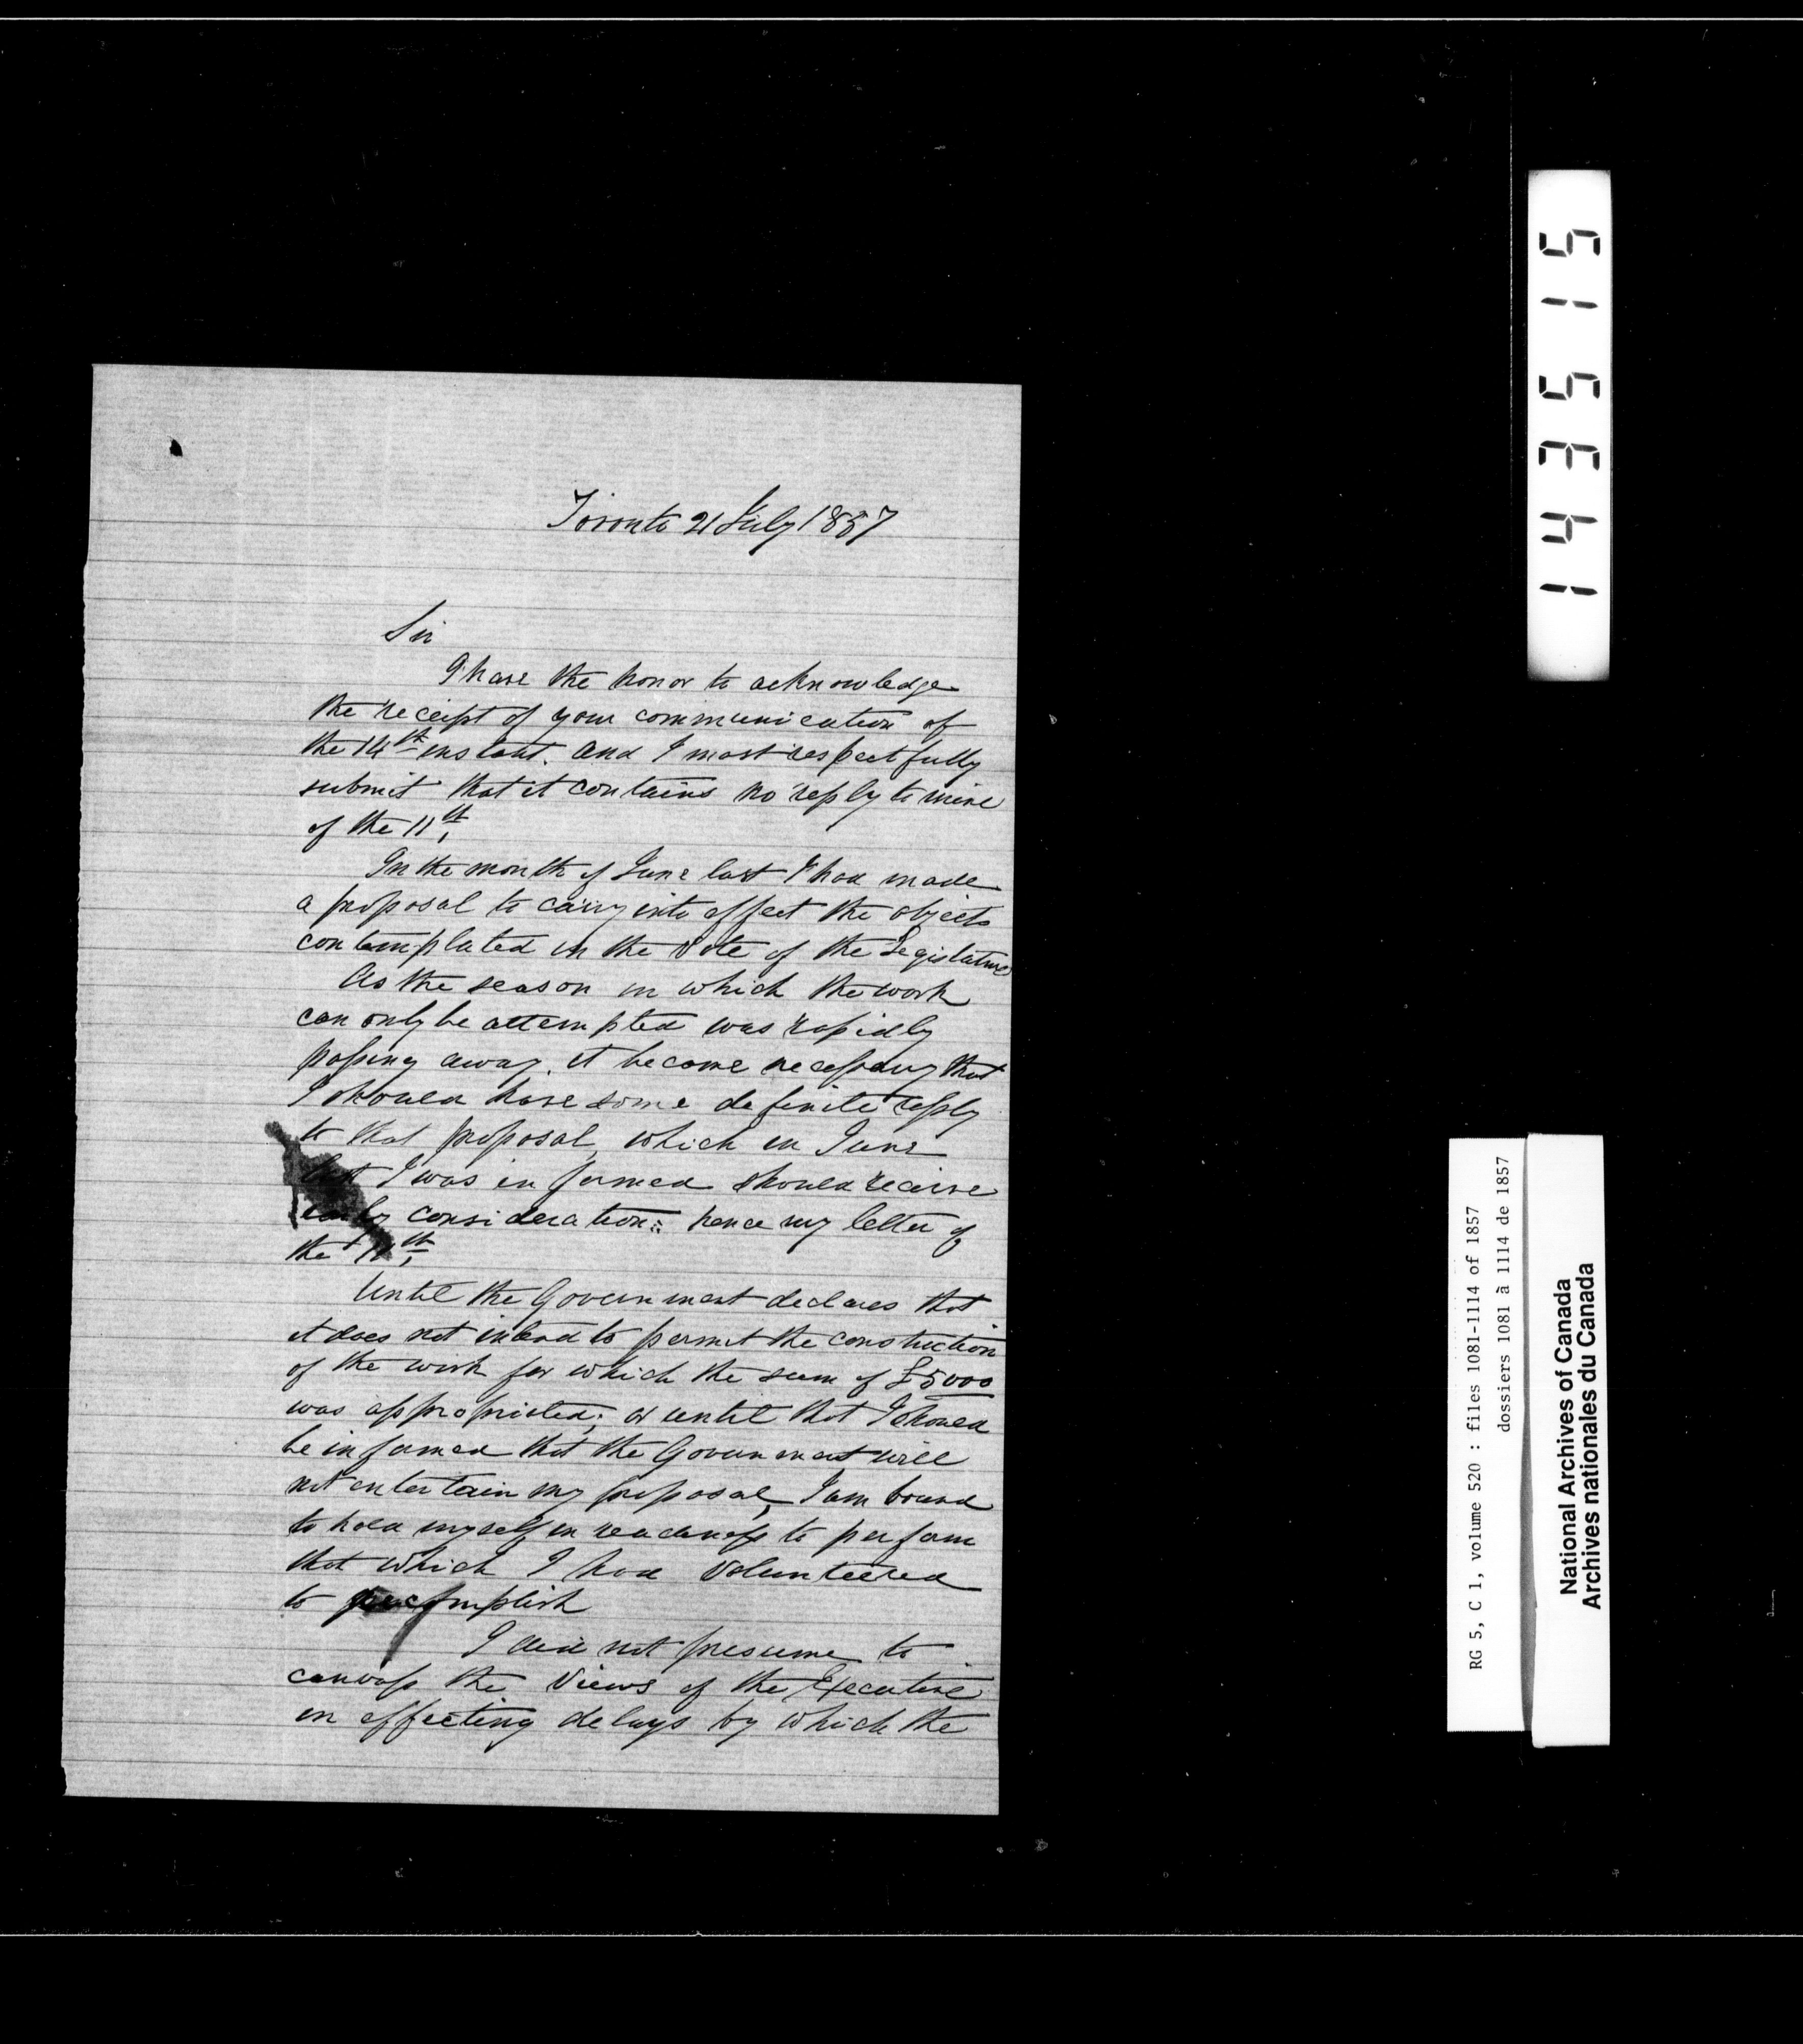 Toronto 21 July 1857
Sir
I have the honor to acknowledge
the receipt of your communication of
the 14th instant. and I most respectfully
submit that it contains no reply to mine
of the 11th,
In the month of June last I had made
a proposal to carry into effect the objects
contemplated in the Vote of the Legislature
As the season in which the work
can only be attempted was rapidly
passing away. it become necessary that
I should have some definite reply
to that proposal, which in June
last I was informed should receive
early consideration: hence my letter of
the 11th,
Until the Government declares that
it does not intend to permit the construction
of the work for which the sum of £5000
was appropriated; or until that I should
be informed that the Government will
not entertain my proposal, I am bound
to hold myself in readiness to perform
that which I had Volunteered
to accomplish
I did not presume to
canvass the Views of the Executive
in effecting delays by which the
1 4 3 5 1 5
RG 5, C 1, volume 520 : files 1081-1114 of 1857
dossiers 1081 à 1114 de 1857
National Archives of Canada
Archives nationales du Canada